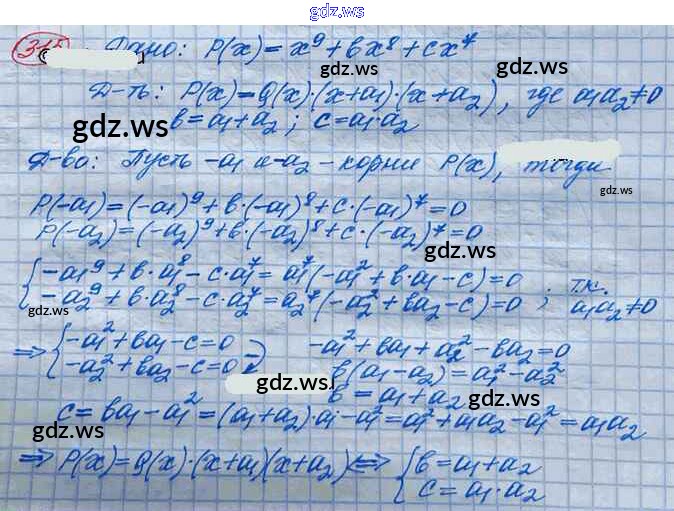 gdz.ws
315 Дано: P(x)=x⁹+bx⁸+cx⁷
gdz.ws
Д-ть: P(x)=Q(x)·(x+a₁)·(x+a₂), где a₁a₂≠0
gdz.ws b=a₁+a₂; c=a₁·a₂
Д-во: Пусть -a₁ и -a₂ - корни P(x), тогда
gdz.ws
P(-a₁)=(-a₁)⁹+b·(-a₁)⁸+c·(-a₁)⁷=0
P(-a₂)=(-a₂)⁹+b·(-a₂)⁸+c·(-a₂)⁷=0
gdz.ws
{-a₁⁹+b·a₁⁸-c·a₁⁷=a₁⁷(-a₁²+b·a₁-c)=0
-a₂⁹+b·a₂⁸-c·a₂⁷=a₂⁷(-a₂²+ba₂-c)=0 ; т.к. a₁a₂≠0
gdz.ws
⇒ {-a₁²+ba₁-c=0 -a₁²+ba₁+a₂²-ba₂=0
-a₂²+ba₂-c=0 b(a₁-a₂)=a₁²-a₂²
gdz.ws b=a₁+a₂ gdz.ws
c=ba₁-a₁²=(a₁+a₂)·a₁-a₁²=a₁²+a₁a₂-a₁²=a₁a₂
gdz.ws gdz.ws
⇒ P(x)=Q(x)·(x+a₁)(x+a₂) ⇔ {b=a₁+a₂
c=a₁·a₂
gdz.ws